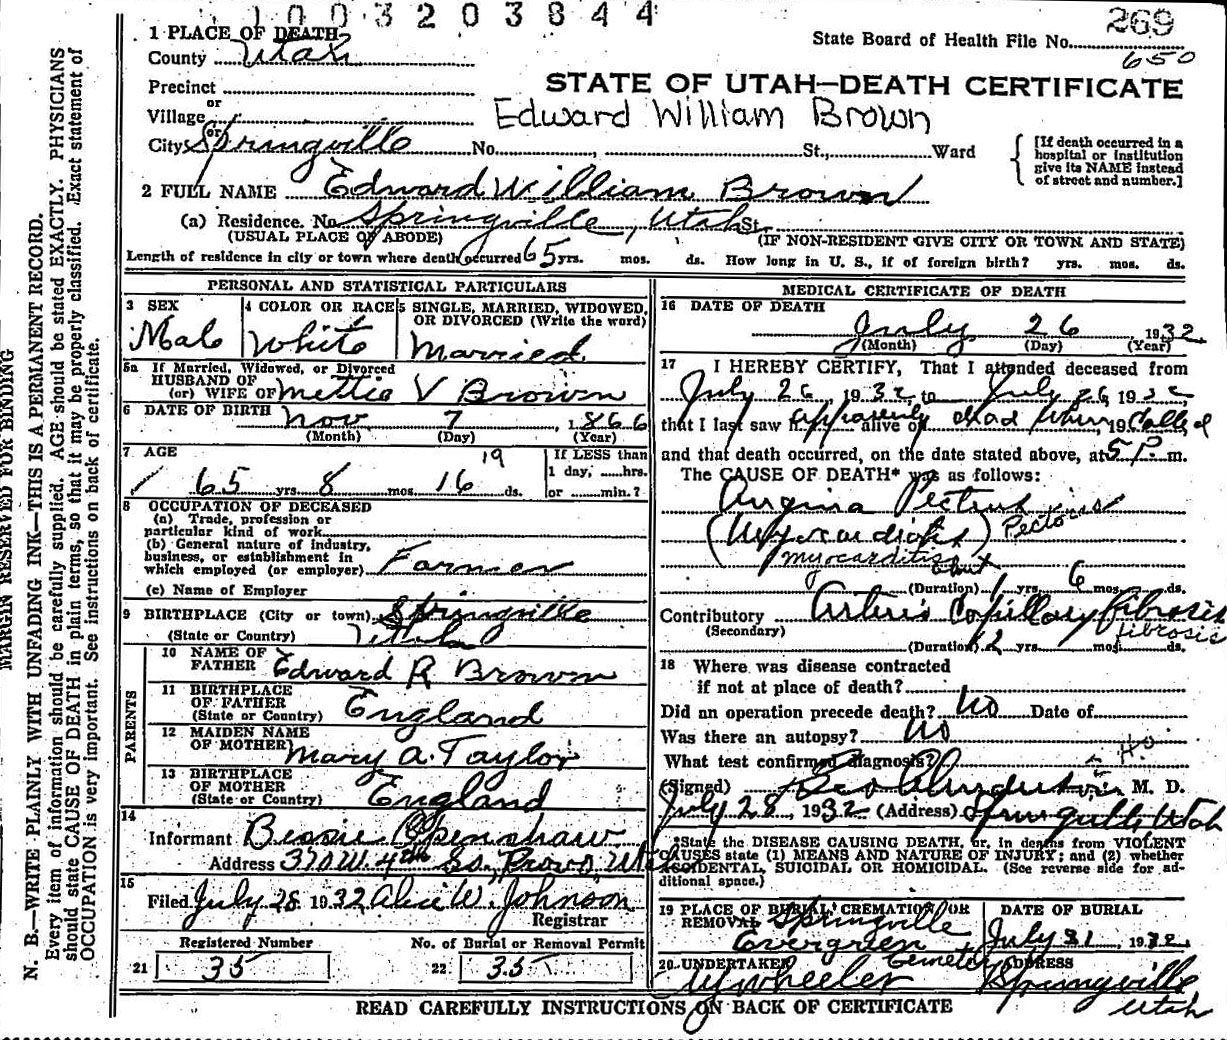 1003203844
269
State Board of Health File No.
650
1 PLACE OF DEATH
County Utah
STATE OF UTAH—DEATH CERTIFICATE
Precinct
or
Village
Edward William Brown
or
City Springville No. , St., Ward
[If death occurred in a hospital or institution give its NAME instead of street and number.]
2 FULL NAME Edward William Brown
(a) Residence. No. Springville, Utah St.
(USUAL PLACE OF ABODE) (IF NON-RESIDENT GIVE CITY OR TOWN AND STATE)
Length of residence in city or town where death occurred 65 yrs. mos. ds. How long in U. S., if of foreign birth? yrs. mos. ds.
PERSONAL AND STATISTICAL PARTICULARS
3 SEX
Male
4 COLOR OR RACE
White
5 SINGLE, MARRIED, WIDOWED, OR DIVORCED (Write the word)
Married
5a If Married, Widowed, or Divorced
HUSBAND OF
(or) WIFE OF Mettie V Brown
6 DATE OF BIRTH Nov 7, 1866
(Month) (Day) (Year)
7 AGE
65 yrs. 8 mos. 16 ds.
19
If LESS than
1 day, ......hrs.
or ......min.?
8 OCCUPATION OF DECEASED
(a) Trade, profession or
particular kind of work
(b) General nature of industry,
business, or establishment in
which employed (or employer) Farmer
(c) Name of Employer
9 BIRTHPLACE (City or town) Springville
(State or Country) Utah
PARENTS
10 NAME OF
FATHER Edward R Brown
11 BIRTHPLACE
OF FATHER
(State or Country) England
12 MAIDEN NAME
OF MOTHER Mary A. Taylor
13 BIRTHPLACE
OF MOTHER
(State or Country) England
14
Informant Bessie Openshaw
Address 370 W. 4th So, Provo, Utah
15
Filed July 28 1932 Alice W. Johnson
Registrar
Registered Number
21 35
No. of Burial or Removal Permit
22 35
MEDICAL CERTIFICATE OF DEATH
16 DATE OF DEATH
July 26 1932
(Month) (Day) (Year)
17 I HEREBY CERTIFY, That I attended deceased from
July 26, 1932 to July 26, 1932,
that I last saw h alive on apparently dead when, 19 called
and that death occurred, on the date stated above, at 5 P. m.
The CAUSE OF DEATH* was as follows:
Angina Pectoris
Pectoris
(Myocarditis)
myocarditis
about
(Duration) 1 yrs. 6 mos. ds.
Contributory Capillary fibrosis
(Secondary) fibrosis
(Duration) 12 yrs. mos. ds.
18 Where was disease contracted
if not at place of death?
Did an operation precede death? No Date of
Was there an autopsy? No
What test confirmed diagnosis?
(Signed) M. D.
July 28, 1932 (Address) Springville, Utah
*State the DISEASE CAUSING DEATH, or, in deaths from VIOLENT
CAUSES state (1) MEANS AND NATURE OF INJURY; and (2) whether
ACCIDENTAL, SUICIDAL OR HOMICIDAL. (See reverse side for ad-
ditional space.)
19 PLACE OF BURIAL, CREMATION OR
REMOVAL Springville
Evergreen Cemetery
DATE OF BURIAL
July 31, 1932
20 UNDERTAKER
Wheeler
ADDRESS
Springville
Utah
READ CAREFULLY INSTRUCTIONS ON BACK OF CERTIFICATE
MARGIN RESERVED FOR BINDING
N. B.—WRITE PLAINLY WITH UNFADING INK—THIS IS A PERMANENT RECORD.
Every item of information should be carefully supplied. AGE should be stated EXACTLY. PHYSICIANS
should state CAUSE OF DEATH in plain terms, so that it may be properly classified. Exact statement of
OCCUPATION is very important. See instructions on back of certificate.